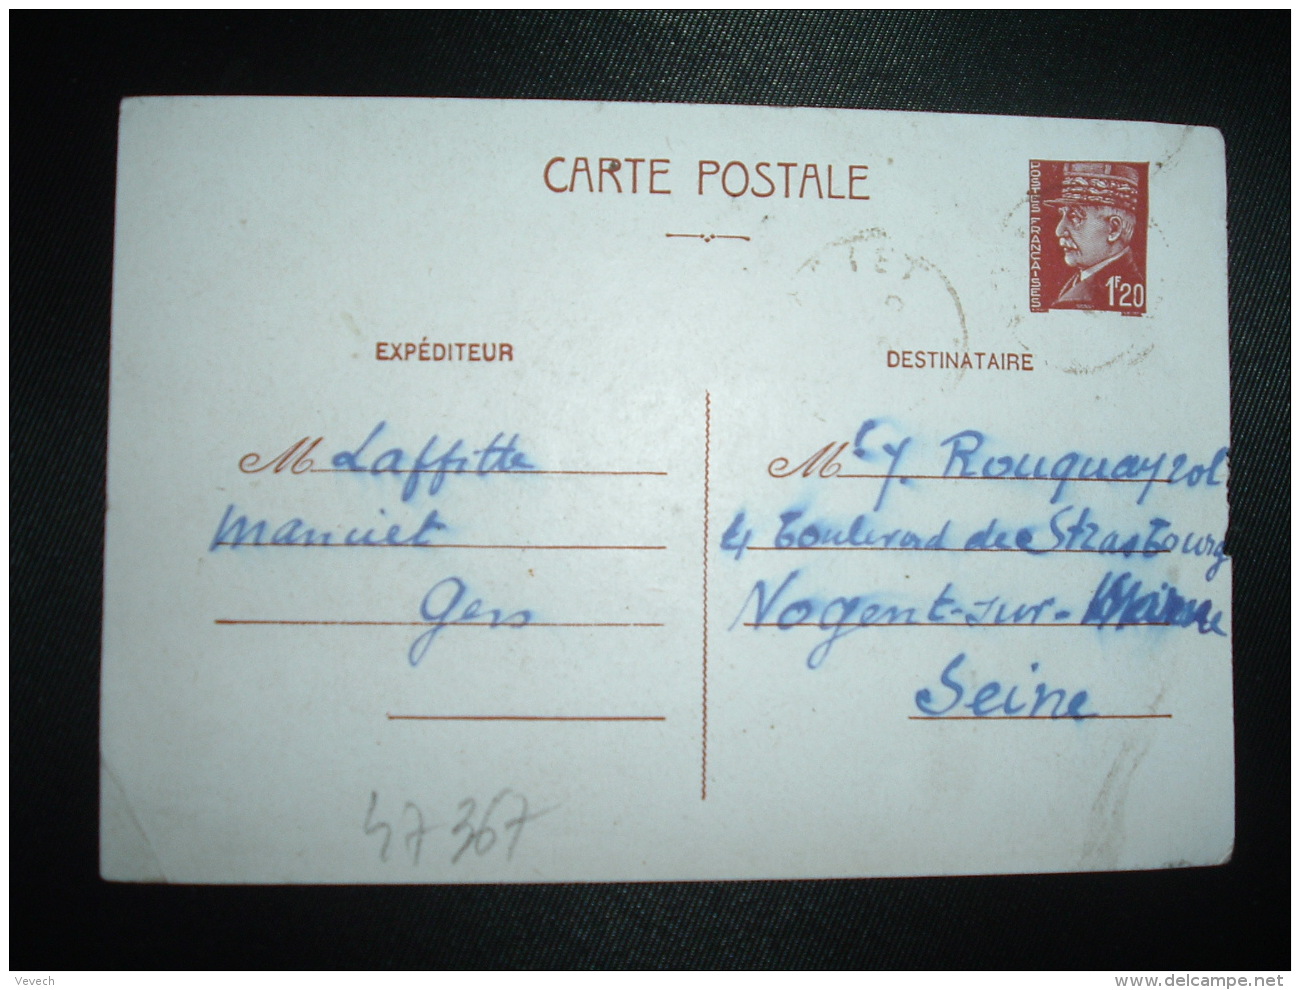 CARTE POSTALE
POSTES FRANÇAISES
1F20
EXPÉDITEUR
DESTINATAIRE
M Laffitte
Manciet
Gers
Mr Y. Rouquayrol
4 Boulevard de Strasbourg
Nogent-sur-Marne
Seine
47367
Vevech
www.delcampe.net